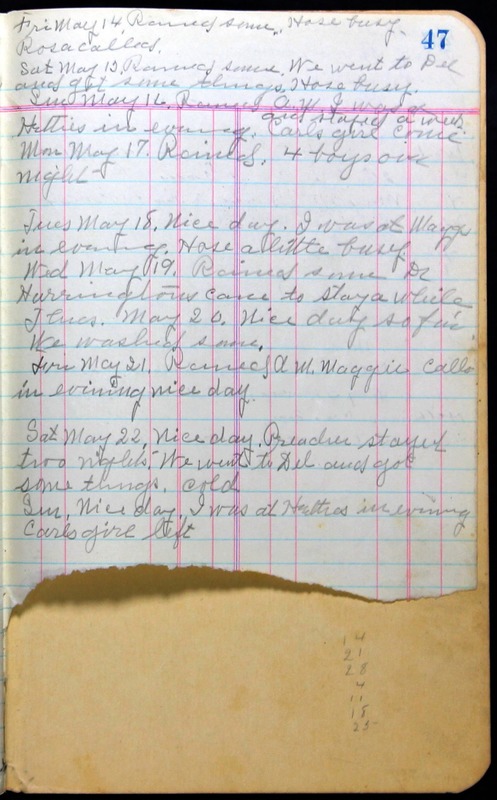 47
Fri May 14 Rained some. Hose busy.
Rosa called.
Sat May 15. Rained some. We went to Del
and got some things. Hose busy.
Sun May 16. Rained A.M. I was at
Hetties in evening. Carls girl come
and stayed a week.
Mon May 17. Rained. 4 boys over
night
Tues May 18. Nice day. I was at Maggs
in evening. Hose a little busy
Wed May 19. Rained some Dr
Harringtons came to stay a while
Thurs. May 20. Nice day so far.
We washed some.
Fri May 21. Rained A M. Maggie called
in evining nice day.
Sat May 22. Nice day. Preacher stayed
two nights. We went to Del and got
some things. cold
Sun. Nice day. I was at Hetties in evening
Carls girl left
14
21
28
4
11
18
25